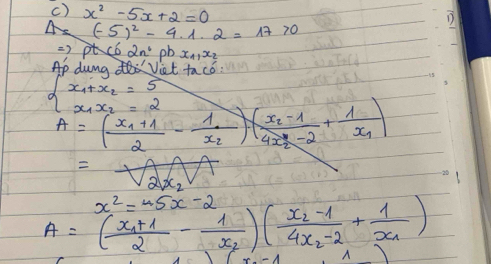 c) x² - 5x + 2 = 0
Δ = (-5)² - 4.1.2 = 17 > 0
=> pt có 2 n⁰ pb x₁, x₂
Áp dụng đlí Viét ta có:
{ x₁ + x₂ = 5
x₁x₂ = 2
A = ((x₁ + 1)/2 - 1/x₂) . ((x₂ - 1)/(4x₂ - 2) + 1/x₁)
=
2x₂
x² = 5x - 2
A = ((x₁ + 1)/2 - 1/x₂) ((x₂ - 1)/(4x₂ - 2) + 1/x₁)